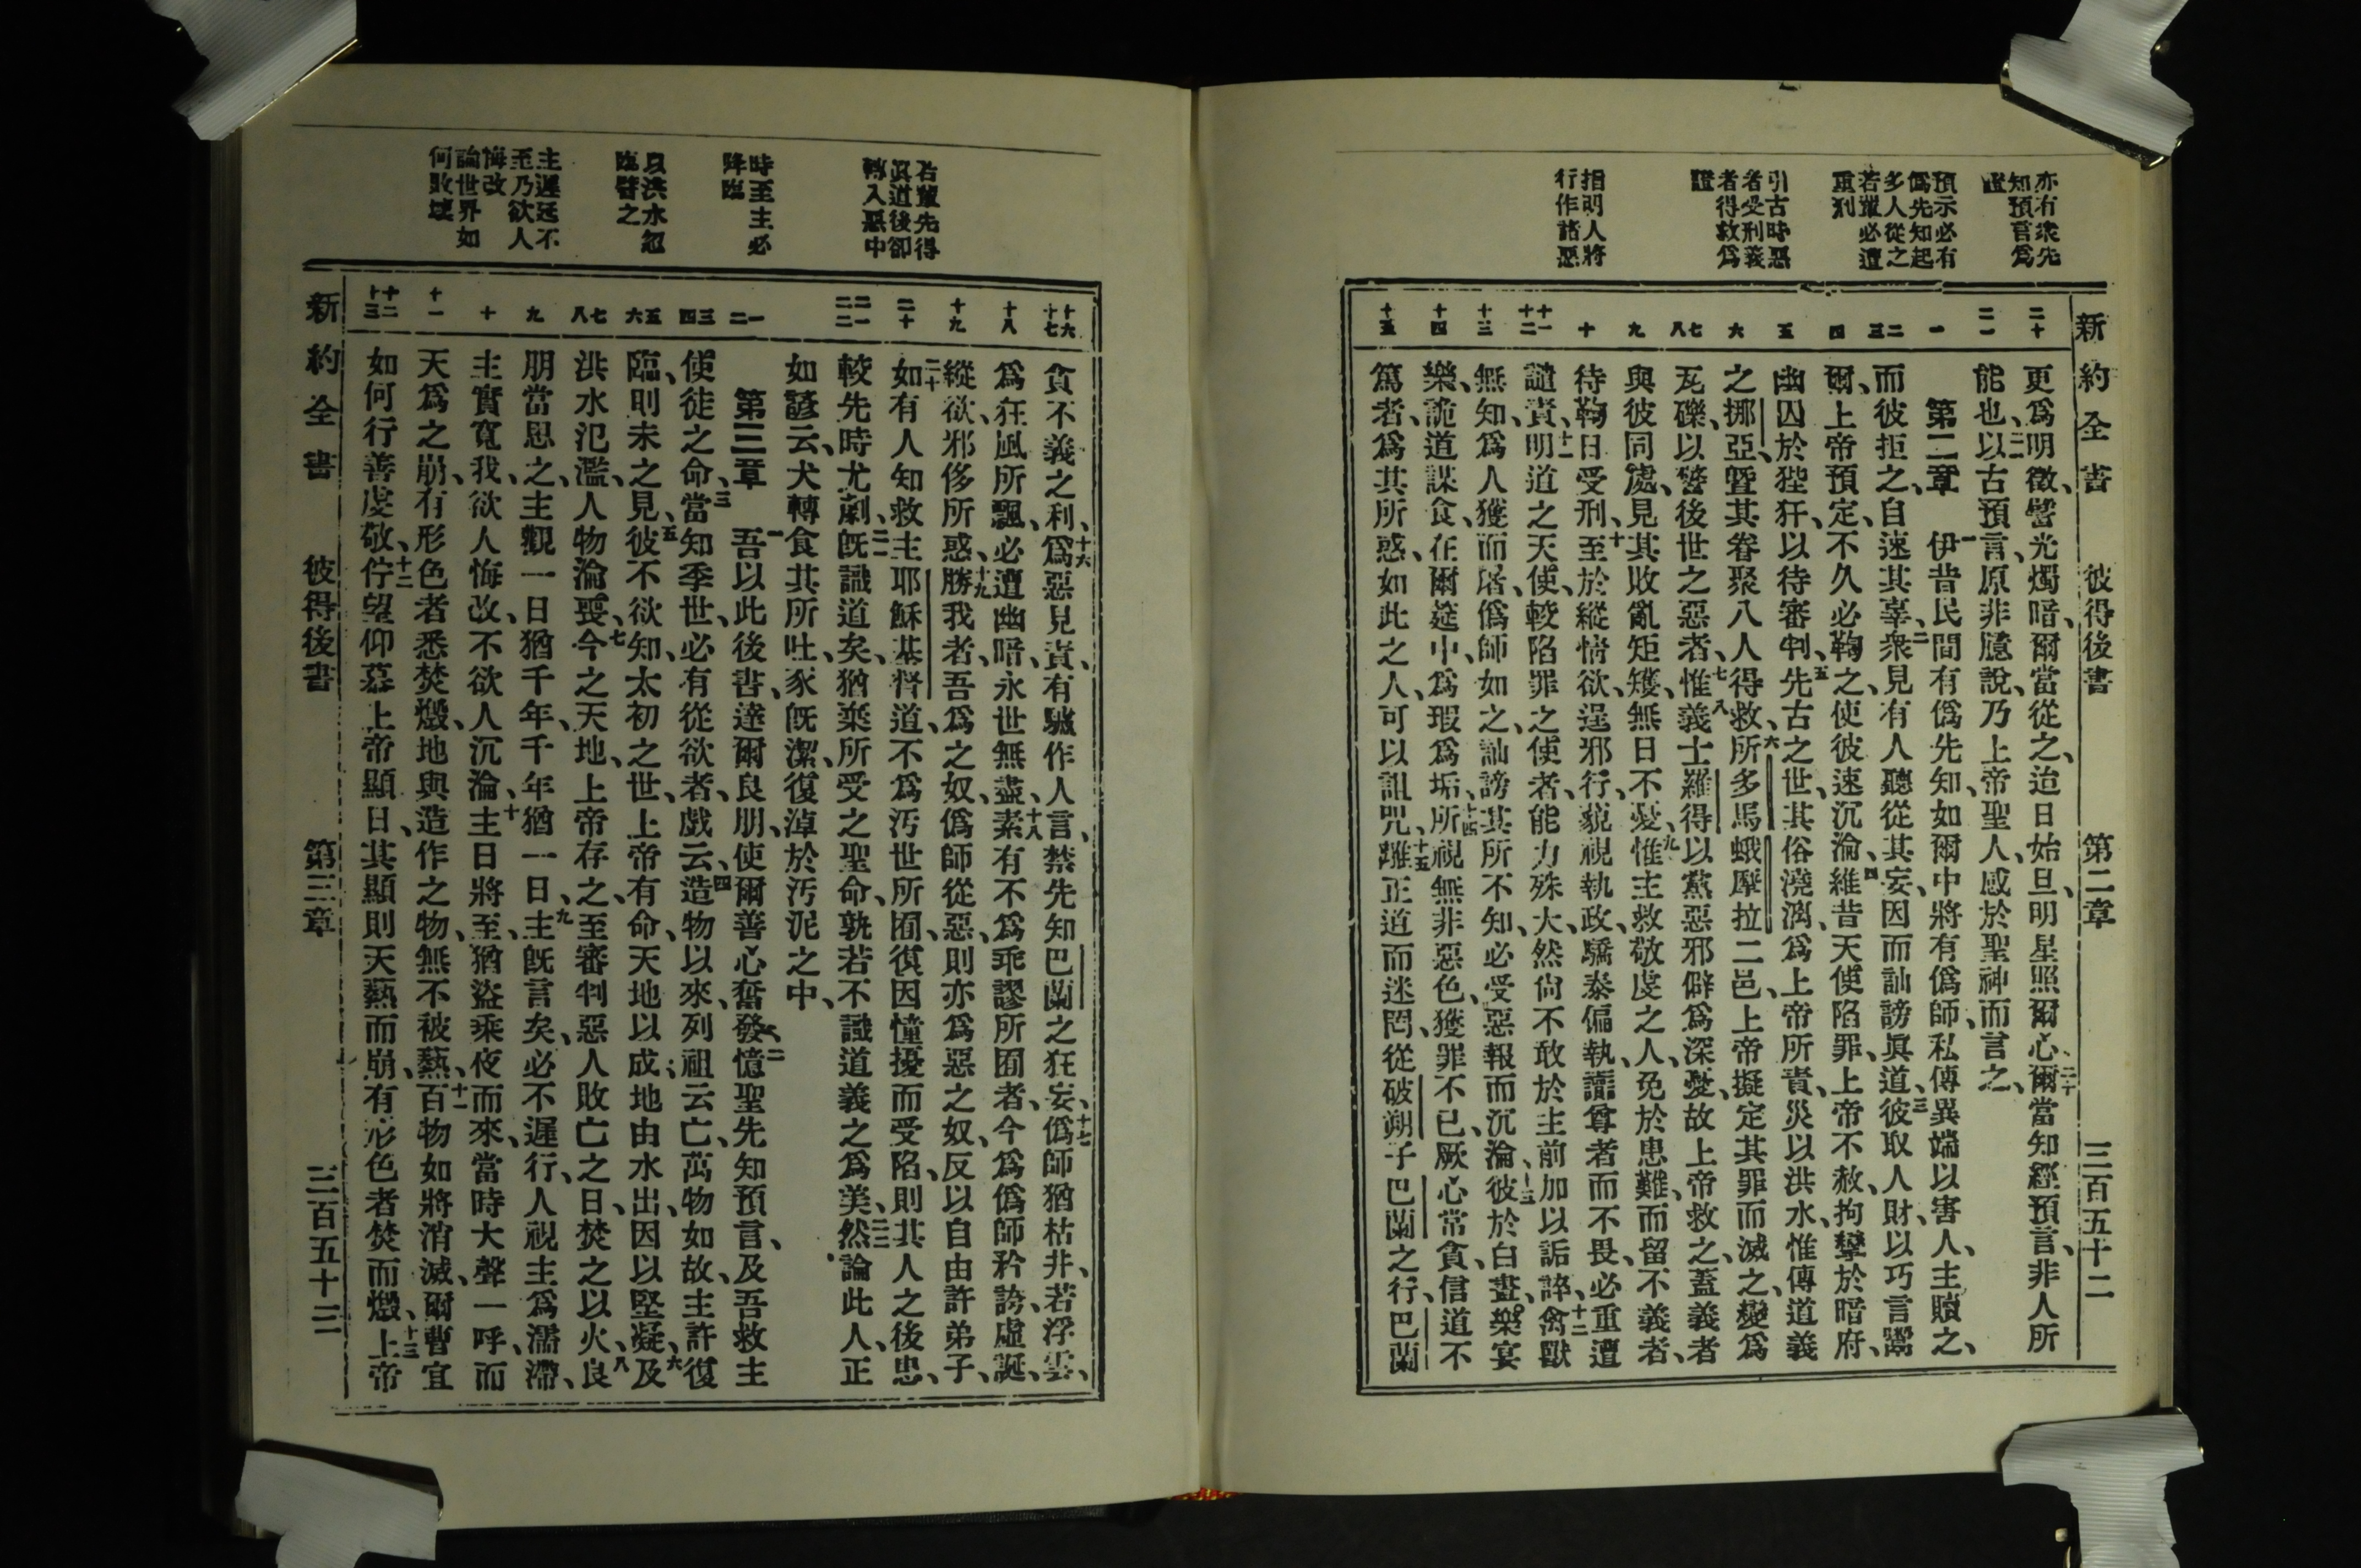 新約全書 彼得後書 第二章 三百五十二
亦有衆先
知預言爲
證
預示必有
僞先知起
多人從之
若輩必遭
重刑
引古時惡
者受刑義
者得救爲
證
指明人將
行作諸惡
二十
二一
一
二三
四
五
六
七八
九
十
十一十二
十三
十四
十五
更爲明徵、譬光燭暗、爾當從之、迨日始旦、明星照爾心、二十爾當知經預言、非人所
能也、二一以古預言、原非臆說、乃上帝聖人、感於聖神而言之、
第二章 一伊昔民間有僞先知、如爾中將有僞師、私傳異端以害人、主贖之、
而彼拒之、自速其辜、二衆見有人聽從其妄、因而訕謗眞道、三彼取人財、以巧言鬻
爾、上帝預定、不久必鞫之、使彼速沉淪、四維昔天使陷罪、上帝不赦、拘攣於暗府、
幽囚於狴犴、以待審判、五先古之世、其俗澆漓、爲上帝所責、災以洪水、惟傳道義
之挪亞、曁其眷聚八人得救、六所多馬蛾摩拉二邑、上帝擬定其罪而滅之、變爲
瓦礫、以警後世之惡者、七惟義士羅得、八以黨惡邪僻爲深憂、故上帝救之、蓋義者
與彼同處、見其敗亂矩矱、無日不憂、九惟主救敬虔之人、免於患難、而留不義者、
待鞫日受刑、十至於縱情欲、逞邪行、藐視執政、驕泰偏執、讟尊者而不畏、必重遭
譴責、十一明道之天使、較陷罪之使者、能力殊大、然尙不敢於主前加以詬誶、十二禽獸
無知、爲人獲而屠、僞師如之、訕謗其所不知、必受惡報而沉淪、十三彼於白晝樂宴
樂、詭道謀食、在爾筵中、爲瑕爲垢、十四所視無非惡色、獲罪不已、厥心常貪、信道不
篤者、爲其所惑、如此之人、可以詛咒、十五離正道而迷罔、從破朔子巴蘭之行、巴蘭
若輩先得
眞道後卻
轉入惡中
時至主必
降臨
以洪水忽
臨譬之
主遲延不
至乃欲人
悔改
論世界如
何敗壞
十六十七
十八
十九
二十
二一二二
一二
三四
五六
七八
九
十
十一
十二十三
貪不義之利、十六爲惡見責、有驢作人言、禁先知巴蘭之狂妄、十七僞師猶枯井、若浮雲、
爲狂風所飄、必遭幽暗、永世無盡、十八素有不爲乖謬所囿者、今爲僞師矜誇虛誕、
縱欲邪侈所惑、十九勝我者、吾爲之奴、僞師從惡、則亦爲惡之奴、反以自由許弟子、
二十如有人知救主耶穌基督道、不爲汚世所囿、復因憧擾而受陷、則其人之後患、
較先時尤劇、二一旣識道矣、猶棄所受之聖命、孰若不識道義之爲美、二二然論此人、正
如諺云、犬轉食其所吐、豕旣潔、復淖於汚泥之中、
第三章 一吾以此後書、達爾良朋、使爾善心奮發、二憶聖先知預言、及吾救主
使徒之命、三當知季世、必有從欲者、戲云、四造物以來、列祖云亡、萬物如故、主許復
臨、則未之見、五彼不欲知、太初之世、上帝有命、天地以成、地由水出、因以堅凝、六及
洪水氾濫、人物淪喪、七今之天地、上帝存之、至審判惡人敗亡之日、焚之以火、八良
朋當思之、主觀一日猶千年、千年猶一日、九主旣言矣、必不遲行、人視主爲濡滯、
主實寬我、欲人悔改、不欲人沉淪、十主日將至、猶盜乘夜而來、當時大聲一呼、而
天爲之崩、有形色者悉焚燬、地與造作之物、無不被爇、十一百物如將消滅、爾曹宜
如何行善虔敬、十二佇望仰慕上帝顯日、其顯則天爇而崩、有形色者焚而燬、十三上帝
新約全書 彼得後書 第三章 三百五十三